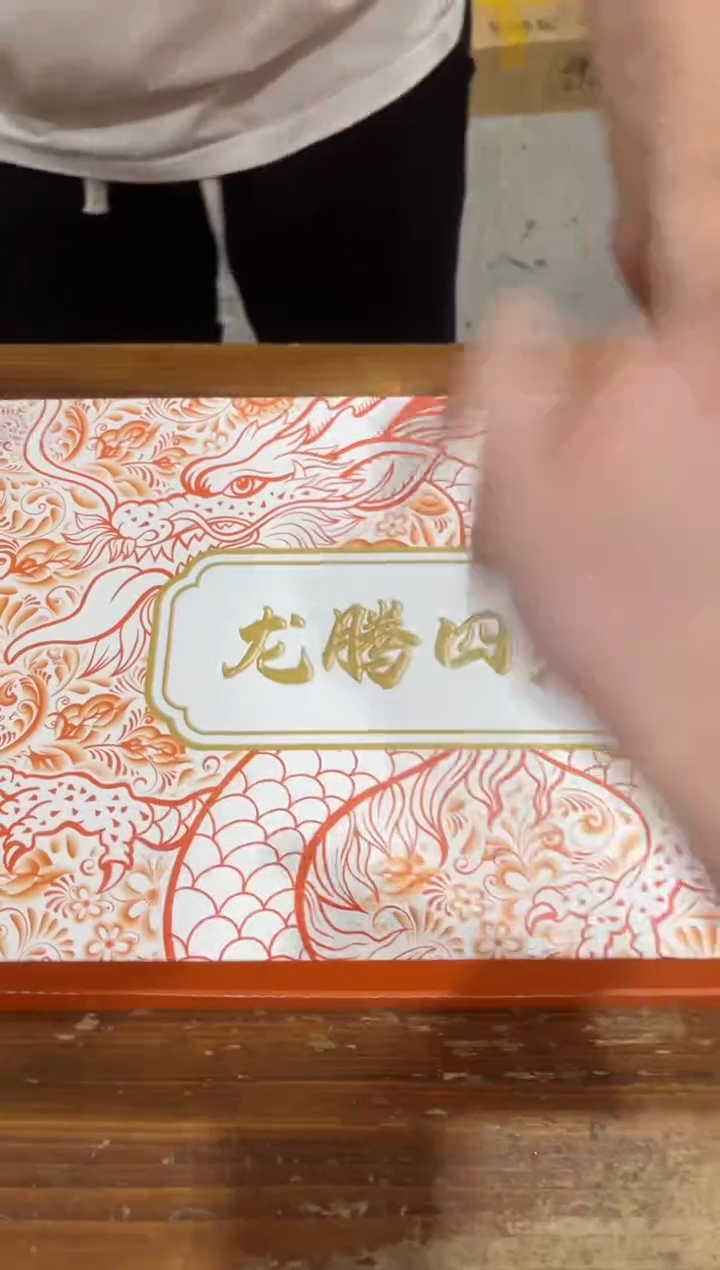 龙腾四